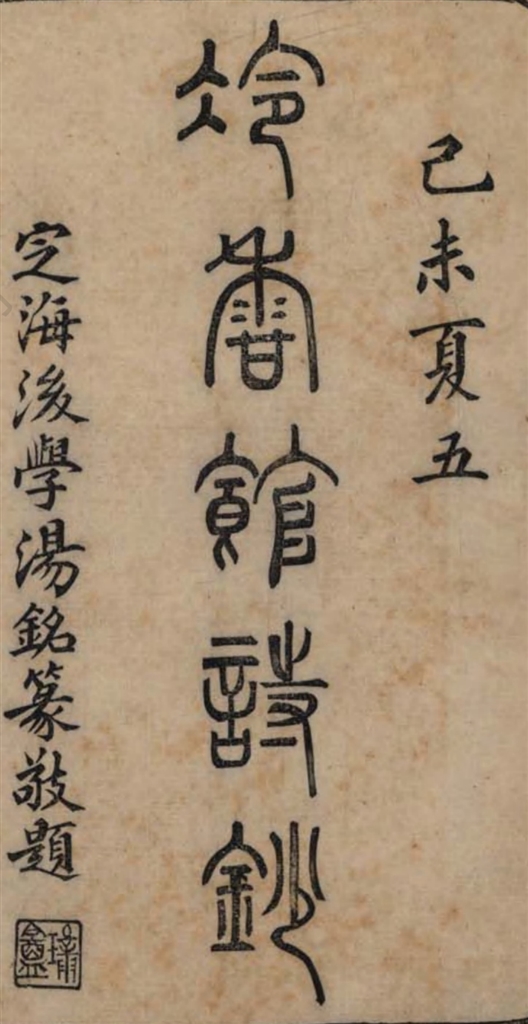 己未夏五
冷香館詩鈔
定海後學湯銘篆敬題